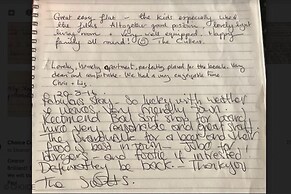 Great easy flat - the kids especially liked
the films. Altogether good position, lovely light
living room & very well equipped. Happy
family all round! The
Lovely, homely apartment, perfectly placed for the beach. Very
clean and comfortable. We had a very enjoyable time
Chris +
Fabulous stay. So lucky with weather
& waves. Very friendly town.
Recommend surf shop for board
hire very reasonable and great staff.
for a
food & best in town -
burgers - and footie if interested!
Definitely be back. Thankyou
The